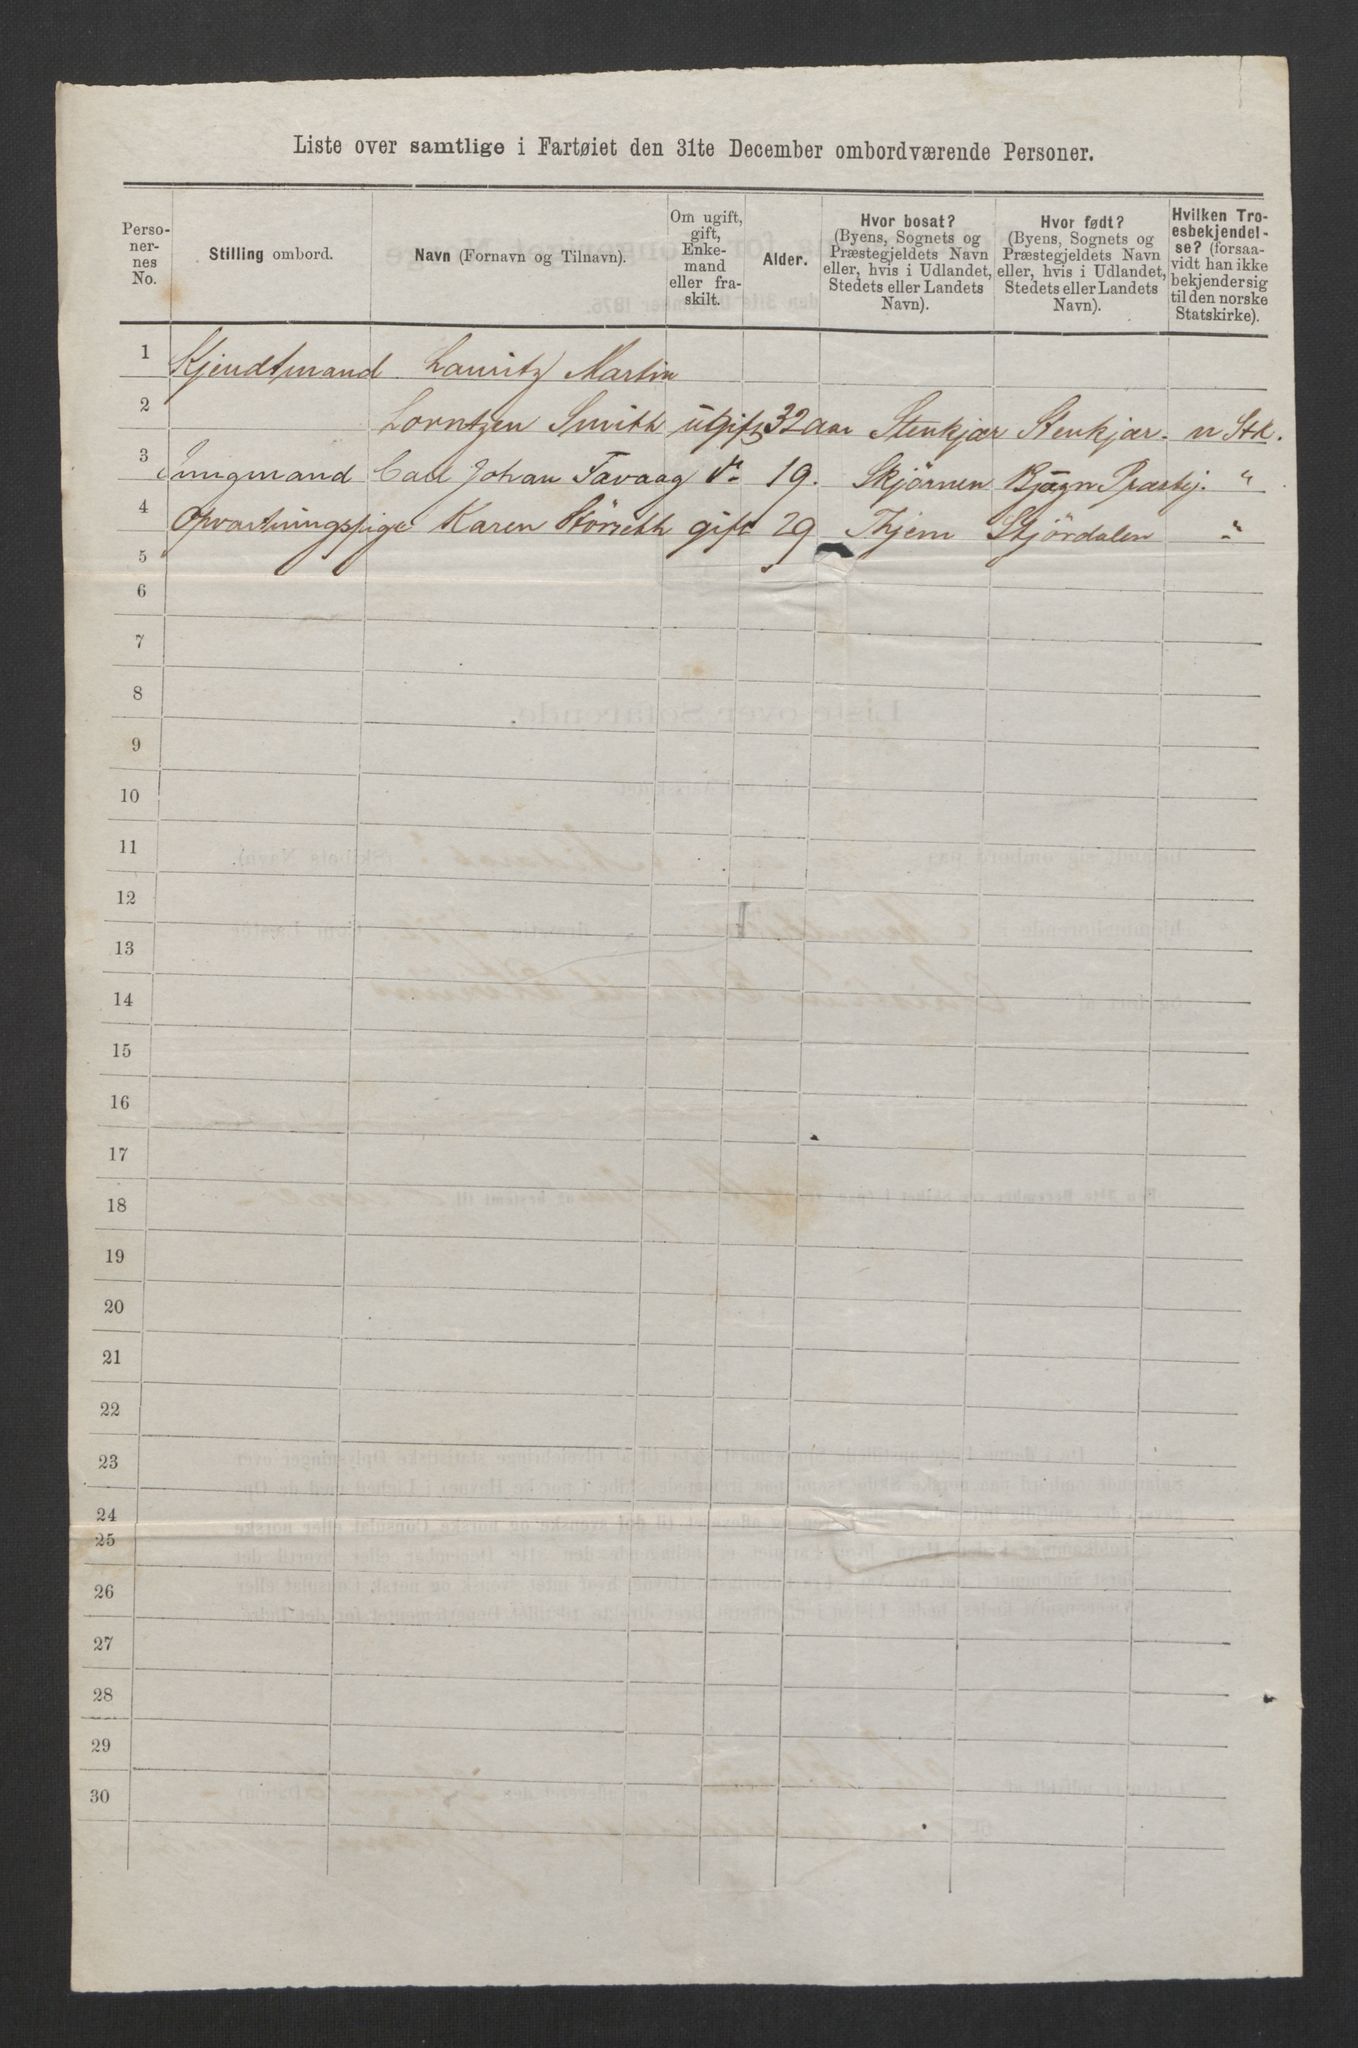 Liste over samtlige i Fartøiet den 31te December ombordværende Personer.
Perso-
ner-
nes
No.
Stilling ombord.
Navn (Fornavn og Tilnavn).
Om ugift,
gift,
Enke-
mand
eller fra-
skilt.
Alder.
Hvor bosat?
(Byens, Sognets og
Præstegjeldets Navn
eller, hvis i Udlandet,
Stedets eller Landets
Navn).
Hvor født?
(Byens, Sognets og
Præstegjeldets Navn
eller, hvis i Udlandet,
Stedets eller Landets
Navn).
Hvilken Tro-
esbekjendel-
se? (forsaa-
vidt han ikke
bekjender sig
til den norske
Statskirke).
1 Kjendtmand Lauritz Martin
2 Lorntzen Smith ugift 32 aar Stenkjær Stenkjær n Stk.
3 Jungmand Carl Johan Tavaag 19. Skjørnen Præstej. "
4 Opvartningspige Karen gift 29 Skjördalen "
5
6
7
8
9
10
11
12
13
14
15
16
17
18
19
20
21
22
23
24
25
26
27
28
29
30